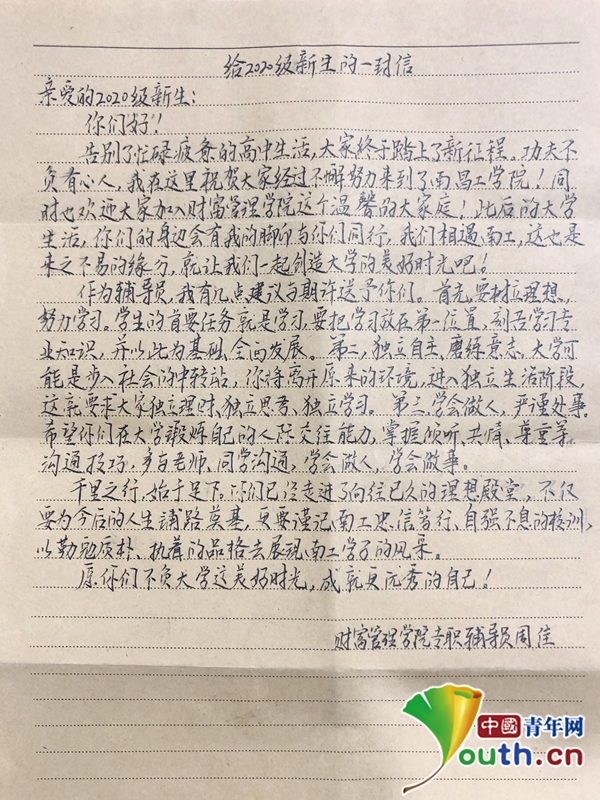 给2020级新生的一封信
亲爱的2020级新生：
你们好！
告别了忙碌疲惫的高中生活，大家终于踏上了新征程。功夫不
负有心人，我在这里祝贺大家经过不懈努力来到了南昌工学院！同
时也欢迎大家加入财富管理学院这个温馨的大家庭！此后的大学
生活，你们的身边会有我的脚印与你们同行，我们相遇南工，这也是
来之不易的缘分，就让我们一起创造大学的美好时光吧！
作为辅导员，我有几点建议与期许送予你们。首先，要树立理想，
努力学习。学生的首要任务就是学习，要把学习放在第一位置，刻苦学习专
业知识，并以此为基础，全面发展。第二，独立自主、磨练意志。大学可
能是步入社会的中转站，你将离开原来的环境，进入独立生活阶段，
这就要求大家独立理财、独立思考、独立学习。第三，学会做人，严谨处事。
希望你们在大学锻炼自己的人际交往能力，掌握倾听、共情、尊重等
沟通技巧，多与老师、同学沟通，学会做人，学会做事。
千里之行，始于足下。你们已经走进了向往已久的理想殿堂，不仅
要为今后的人生铺路奠基，更要谨记南工忠信笃行、自强不息的校训，
以勤勉质朴、执着的品格去展现南工学子的风采。
愿你们不负大学这美好时光，成就更优秀的自己！
财富管理学院专职辅导员周佳
中國青年网
youth.cn